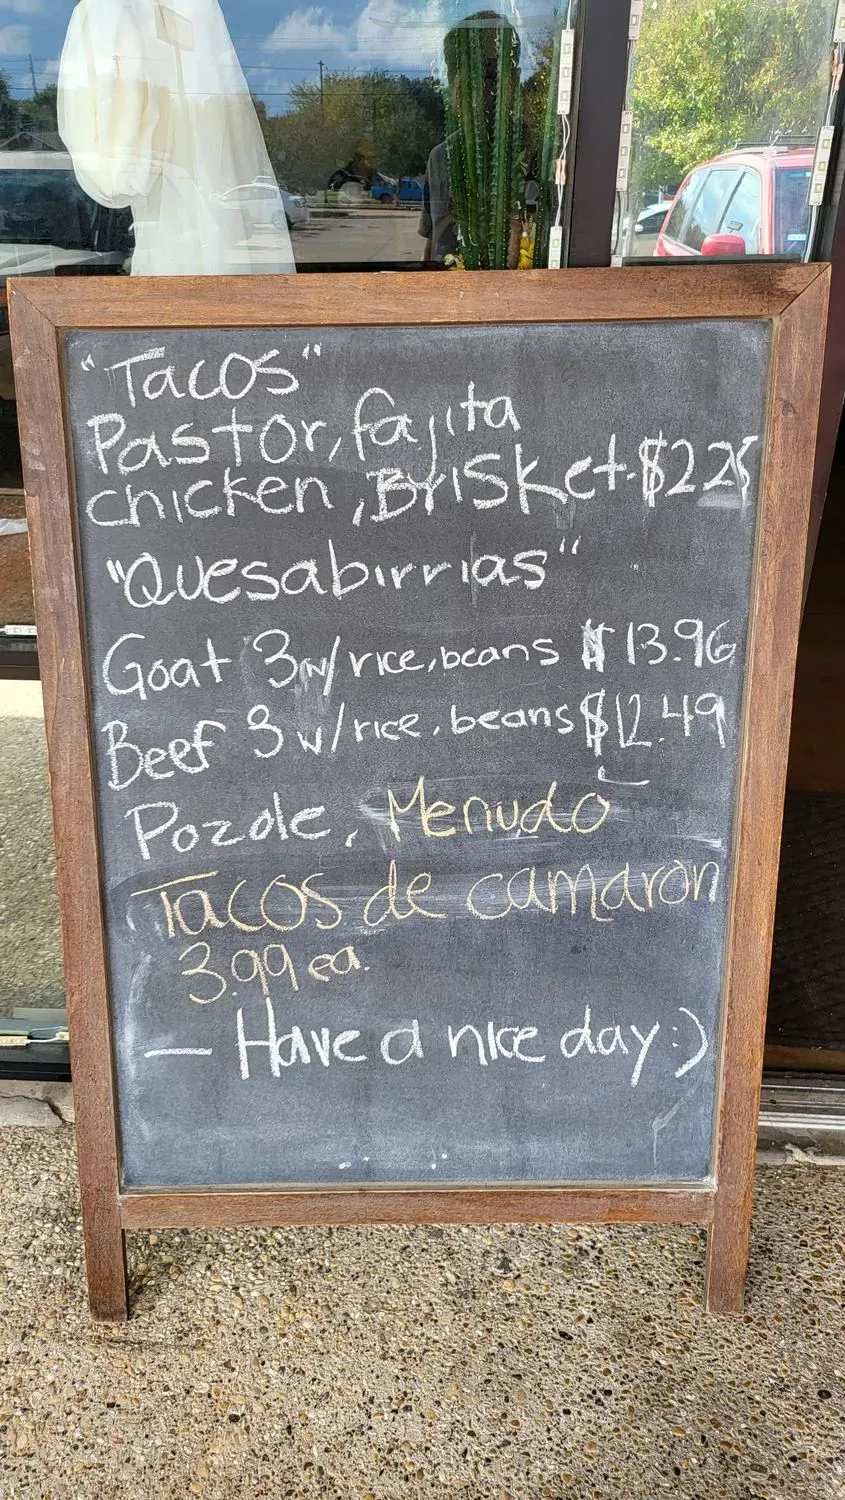 "Tacos"
Pastor, fajita
chicken, Brisket-$225
"Quesabirrias"
Goat 3 w/rice, beans $13.96
Beef 3 w/rice, beans $12.49
Pozole, Menudo
Tacos de camaron
3.99 ea.
— Have a nice day :)